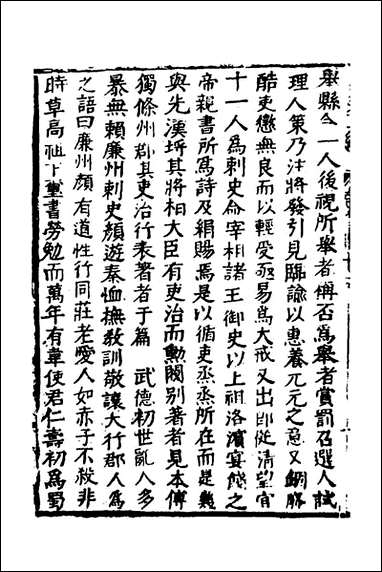 舉縣令一人後視所舉者傅否爲舉者賞罰召選人試
理人策乃注將發引見賜諭以惠養元元之意又鐫勝
酷吏懲無良而以輕受爲易爲大戒又出郎從清望官
十一人爲刺史命宰相諸王御史以上祖洛濱宴餞之
帝親書所爲詩及絹賜焉是以循吏烝烝所在而是幾
與先漢埓其將相大臣有吏治而勳閥别著者見本傳
獨條州郡其吏治行表著者于篇 武德初世亂人多
暴無賴廉州刺史顔遊秦恤撫敎訓敬讓大行郡人爲
之語曰廉州顔有道性行同莊老愛人如赤子不殺非
時草高祖下璽書勞勉而萬年有韋使君仁壽初爲蜀